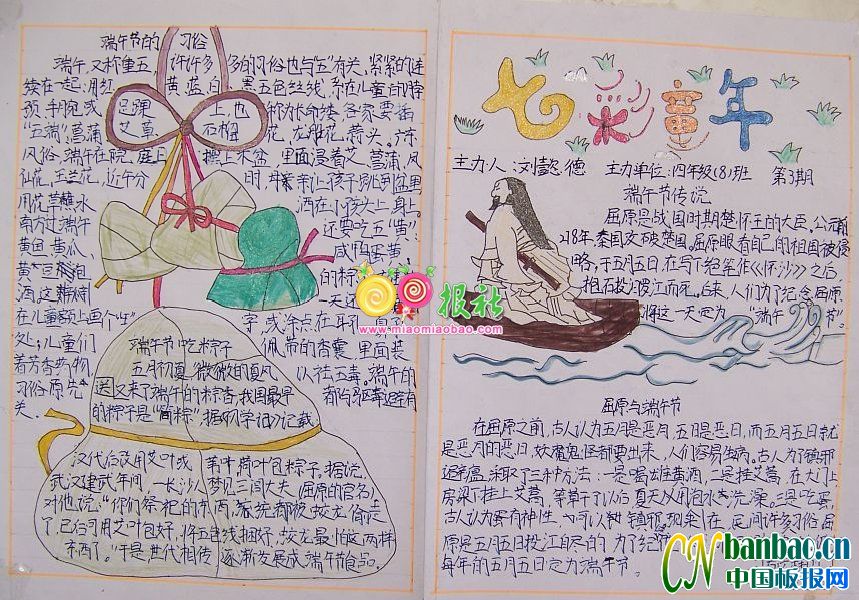 端午节的 习俗
端午,又称重五,许许多多的习俗也与"五"有关,紧紧的连
续在一起:用红 黄 蓝 白 黑 五色丝线,系在儿童的脖
颈,手腕或 足踝 上,也 称为长命缕,各家要插
"五端":菖蒲 艾草 石榴 花,
风俗,端午在院庭上摆上木盆,里面浸着艾,菖蒲,凤
仙花,玉兰花,近午分 时,母亲让孩子跳到盆里
用花草蘸水 洒在小孩头上,身上。
南方过端午 还要吃五"黄":
黄鱼,黄瓜, 咸鸭蛋黄,
的粽
酒,这 一天还
在儿童额上画个"王" 字,或涂点在耳
处;儿童们 佩带的香囊,里面装
着芳香药物, 以祛五毒。端午的
习俗原先 都与驱毒避有
关。
端午节吃粽子
五月初夏,微微的夏风
送又来了端午的粽香,我国最早
的粽子是"筒粽",据《初学记》记载:
汉代后改用艾叶或 苇叶荷叶包粽子。据说,
武汉建武年间,一长沙人梦见三闾大夫(屈原的官名)
对他说:"你们祭祀的东西,
了,已后可用艾叶包好,将五色线捆好,蛟龙最怕这两样
东西了。"于是世代相传,逐渐发展成端午节食品。
七彩童年
主力单位:四年级(8)班 第3期
端午节传说
屈原是战国时期楚怀王的大臣。公元前
278年,秦国攻破楚国。屈原眼看自己的祖国被侵
略,于五月五日,在写下绝笔作《怀沙》之后,
抱石投汨罗江而死。后来,人们为了纪念屈原,
将这一天定为 "端午 节"。
屈原与端午节
在屈原之前,古人认为五月是恶月,五日是恶日,而五月五日就
是恶月的恶日,妖魔鬼怪都要出来,人们容易生病。古人为了镇邪
避瘟,采取了三种方法:一是喝雄黄酒,二是挂艾蒿,在大门上
房梁下挂上艾蒿,等草干了以后夏天用包水洗澡。三是吃蛋
古人认为蛋有神性,可以镇邪,现在,民间许多习俗
原是五月五日投江自尽的,为了纪
每年的五月五日定为端午节。
报社
www.miaomiaobao.com
CN banbao.cn
中国板报网